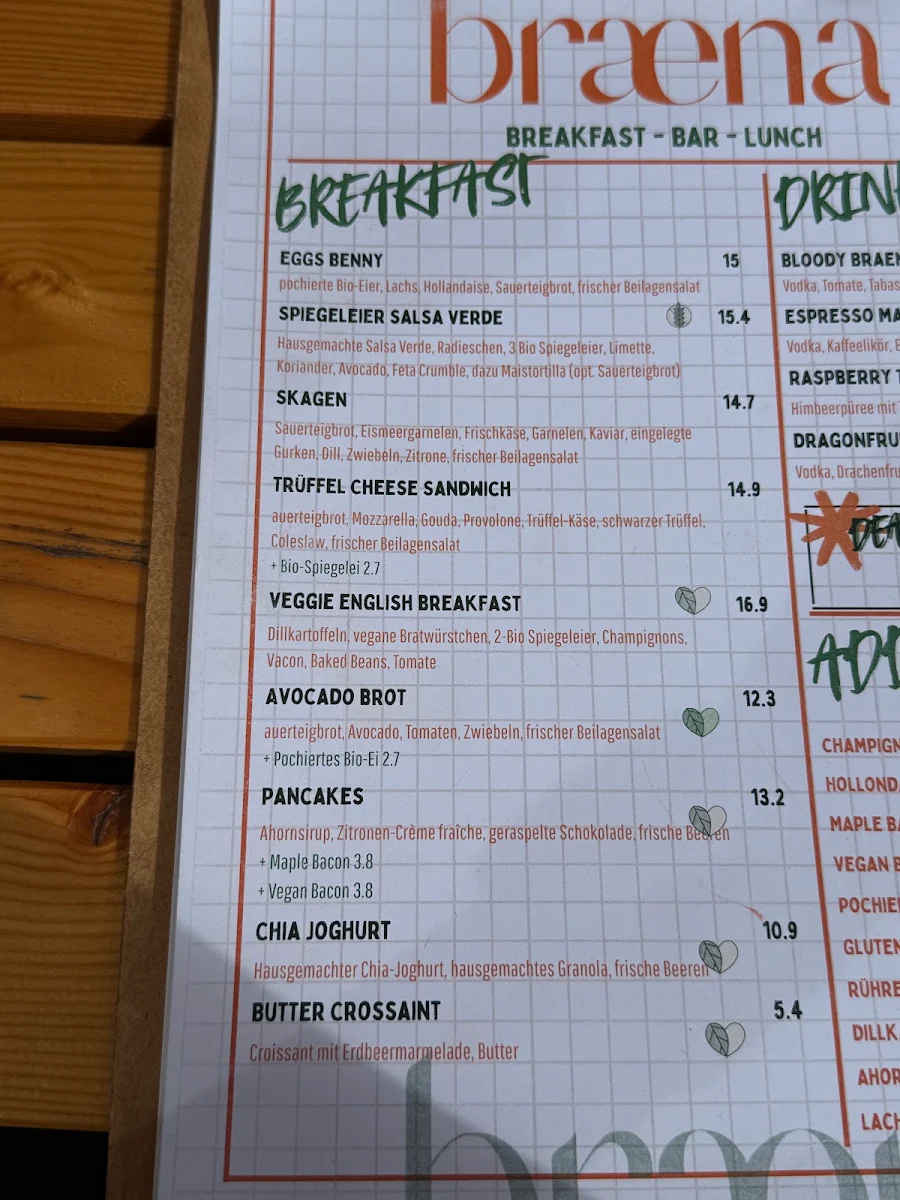 bræna
BREAKFAST - BAR - LUNCH
BREAKFAST
EGGS BENNY 15
pochierte Bio-Eier, Lachs, Hollandaise, Sauerteigbrot, frischer Beilagensalat
SPIEGELEIER SALSA VERDE 15.4
Hausgemachte Salsa Verde, Radieschen, 3 Bio Spiegeleier, Limette,
Koriander, Avocado, Feta Crumble, dazu Maistortilla (opt. Sauerteigbrot)
SKAGEN 14.7
Sauerteigbrot, Eismeergarnelen, Frischkäse, Garnelen, Kaviar, eingelegte
Gurken, Dill, Zwiebeln, Zitrone, frischer Beilagensalat
TRÜFFEL CHEESE SANDWICH 14.9
auerteigbrot, Mozzarella, Gouda, Provolone, Trüffel-Käse, schwarzer Trüffel,
Coleslaw, frischer Beilagensalat
+ Bio-Spiegelei 2.7
VEGGIE ENGLISH BREAKFAST 16.9
Dillkartoffeln, vegane Bratwürstchen, 2-Bio Spiegeleier, Champignons,
Vacon, Baked Beans, Tomate
AVOCADO BROT 12.3
auerteigbrot, Avocado, Tomaten, Zwiebeln, frischer Beilagensalat
+ Pochiertes Bio-Ei 2.7
PANCAKES 13.2
Ahornsirup, Zitronen-Crème fraîche, geraspelte Schokolade, frische Beeren
+ Maple Bacon 3.8
+ Vegan Bacon 3.8
CHIA JOGHURT 10.9
Hausgemachter Chia-Joghurt, hausgemachtes Granola, frische Beeren
BUTTER CROSSAINT 5.4
Croissant mit Erdbeermarmelade, Butter
DRIN
BLOODY BRAEN
Vodka, Tomate, Tabas
ESPRESSO MA
Vodka, Kaffeelikör, E
RASPBERRY T
Himbeerpüree mit
DRAGONFRU
Vodka, Drachenfru
DEA
ADD
CHAMPIGN
HOLLOND
MAPLE BA
VEGAN B
POCHIE
GLUTEN
RÜHRE
DILLK
AHOR
LACH